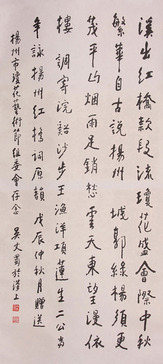 溪出红桥款段流琼花盛会际中秋
繁华自古说扬州 城郭绿杨须更
茂平山烟雨足销愁云天东望漫依
楼 调寄浣谿沙步王渔洋项莲生二公当
年咏扬州红桥词原韵 戊辰仲秋月赠送
扬州市琼花艺术节组委会存念 吴丈蜀於汉上